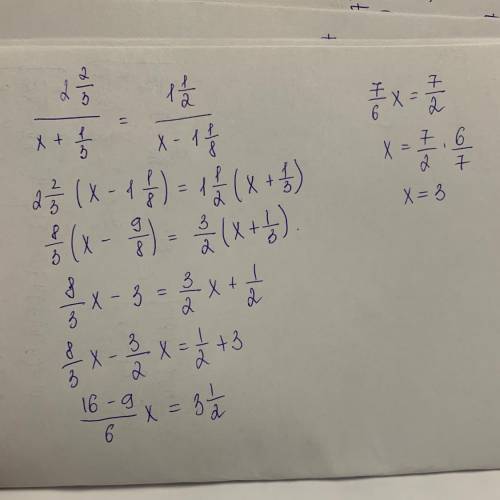 (2 2/3)/(x + 1/3) = (1 1/2)/(x - 1 1/8)
2 2/3 (x - 1 1/8) = 1 1/2 (x + 1/3)
8/3 (x - 9/8) = 3/2 (x + 1/3).
8/3 x - 3 = 3/2 x + 1/2
8/3 x - 3/2 x = 1/2 + 3
(16 - 9)/6 x = 3 1/2
7/6 x = 7/2
x = 7/2 · 6/7
x = 3